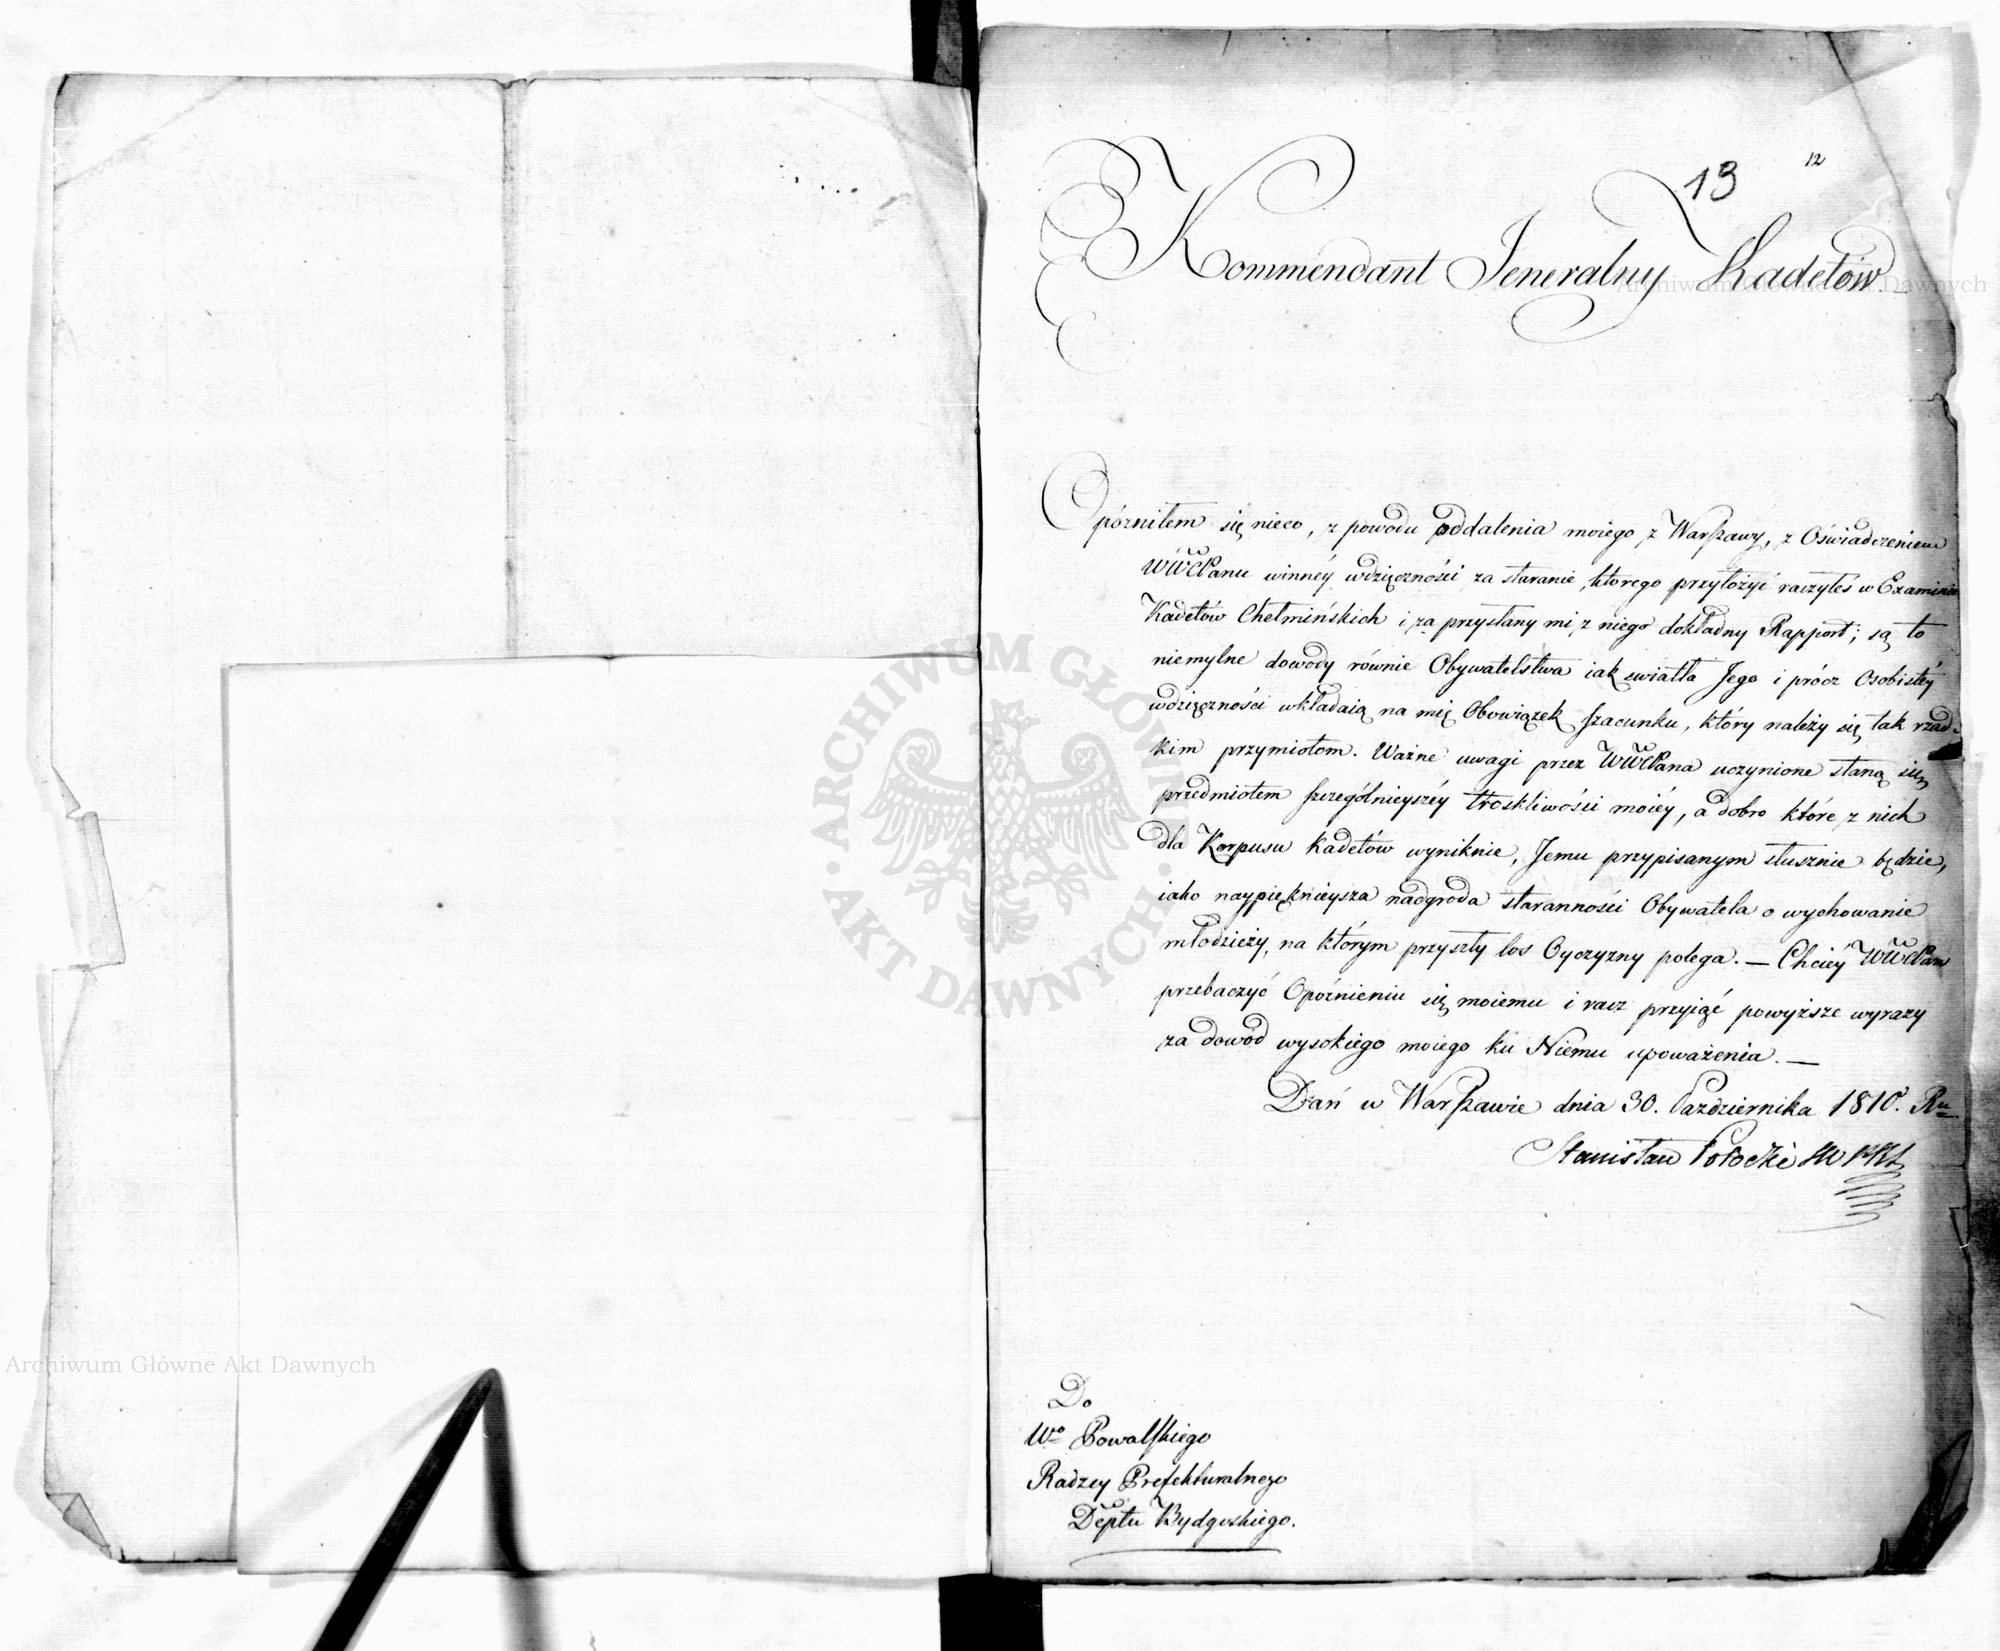 13
12
Kommendant Jeneralny Kadetów
Opózniłem się nieco, z powodu oddalenia moiego z Warszawy, z Oświadczeniem
WWCPanu winnéy wdzięczności za staranie, którego przyłożyć raczyłeś w Examinie
Kadetów Chełmińskich i za przysłany mi z niego dokładny Rapport; są to
niemylne dowody równie Obywatelstwa iak swiatła Jego i prócz Osobistéy
wdzięczności wkładaią na mię Obowiązek szacunku, który należy się tak rzad-
kim przymiotom. Ważne uwagi przez WWCPana uczynione staną się
przedmiotem szczególnieyszéy troskliwości moiéy, a dobro które z nich
dla Korpusu Kadetów wyniknie, Jemu przypisanym słusznie będzie,
iako naypięknieysza nadgroda staranności Obywatela o wychowanie
młodzieży, na którym przyszły los Oyczyzny polega. — Chciéy WWCPan
przebaczyć Opóźnieniu się moiemu i racz przyiąć powyższe wyrazy
za dowód wysokiego moiego ku Niemu upoważenia. —
Dań w Warszawie dnia 30. Pazdziernika 1810. Ru
Stanisław Potocki
Do
Wo Powalskiego
Radzcy Prefekturalnego
Deptu Bydgoskiego.
ARCHIWUM GŁÓWNE
AKT DAWNYCH
Archiwum Główne Akt Dawnych
Archiwum Główne Akt Dawnych